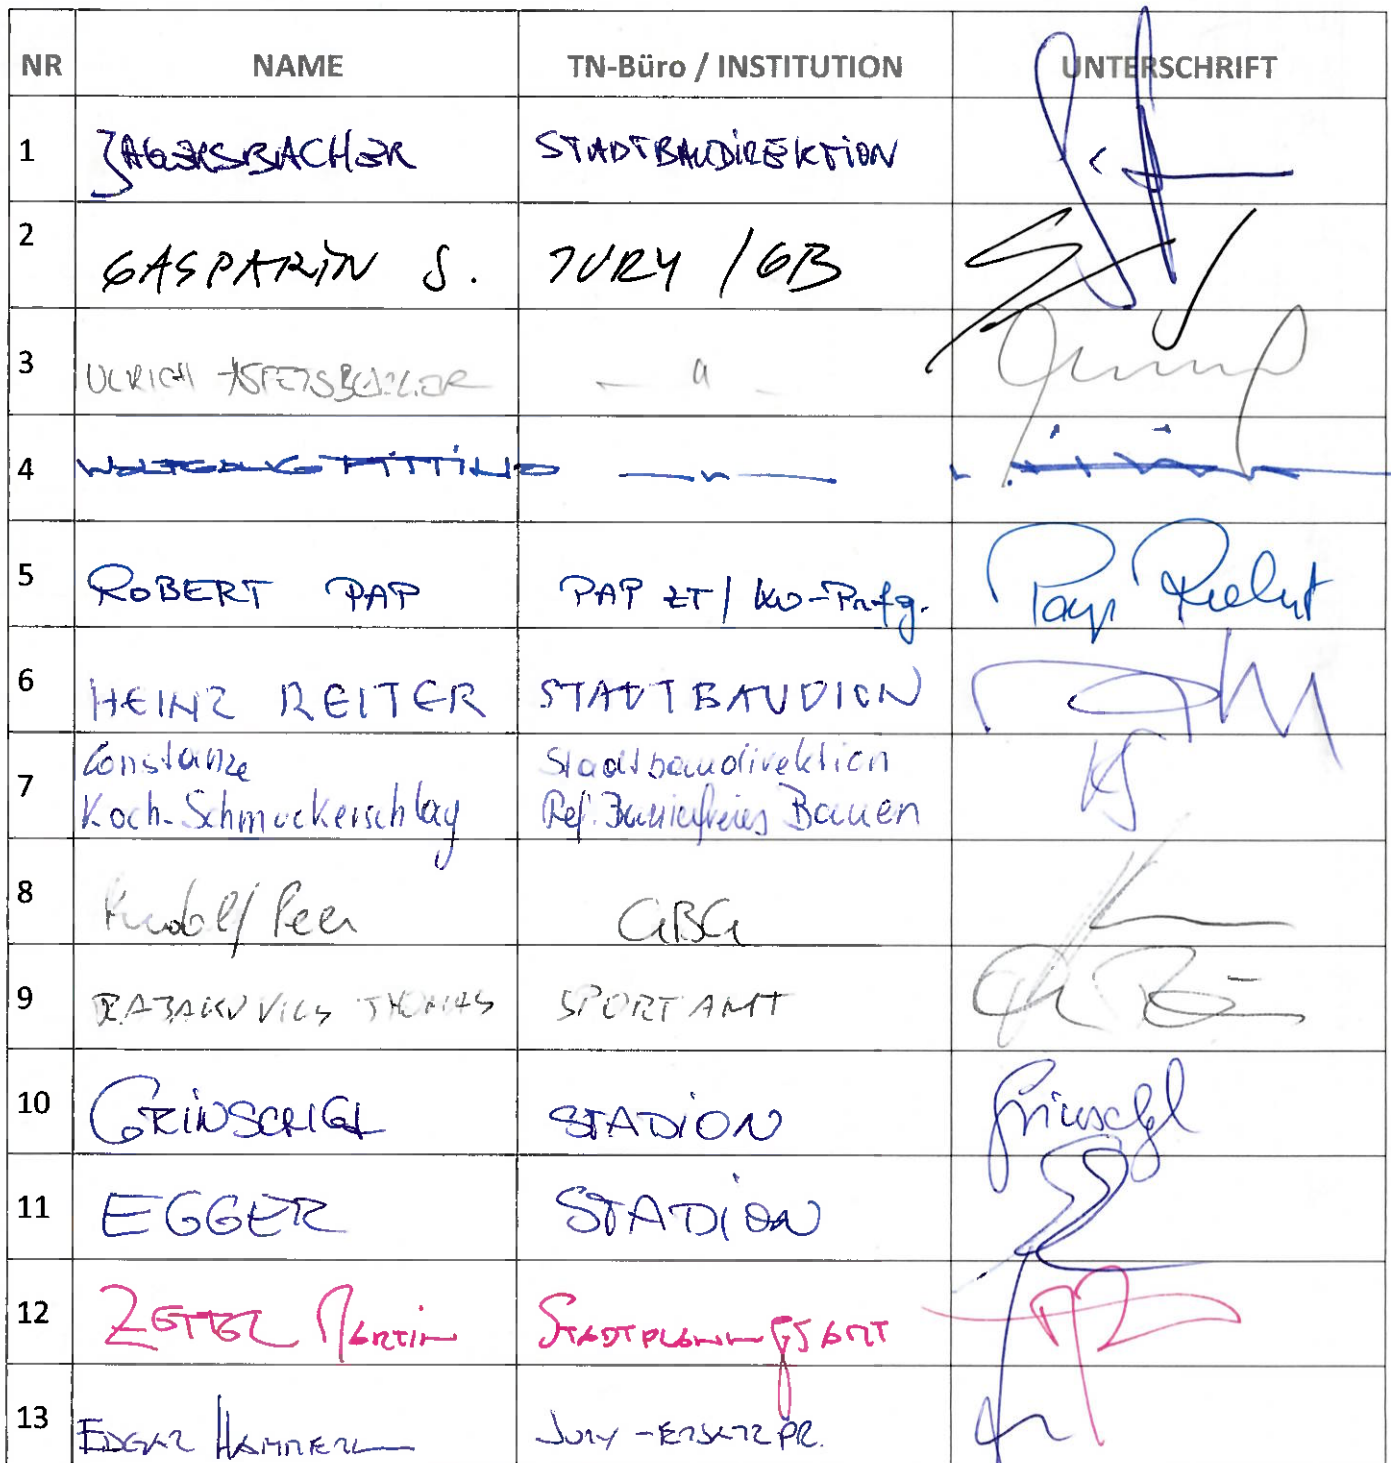 NR NAME TN-Büro / INSTITUTION UNTERSCHRIFT
1 JAGERSBACHER STADTBAUDIREKTION
2 GASPARIN S. JURY / GB
3 ULRICH — " —
4 WOLFGANG — " —
5 ROBERT PAP PAP ZT / Pap Robert
6 HEINZ REITER STADTBAUDION
7 Constanze Stadtbaudirektion
Koch-Schmuckerschlag Ref. Barrierefreies Bauen
8 Rudolf Peer GBG
9 THOMAS SPORTAMT
10 GRINSCHGL STADION Grinschgl
11 EGGER STADION
12 ZETTEL MARTIN STADTPLANUNGSAMT
13 EDGAR HAMMERL JURY - ERSATZPR.